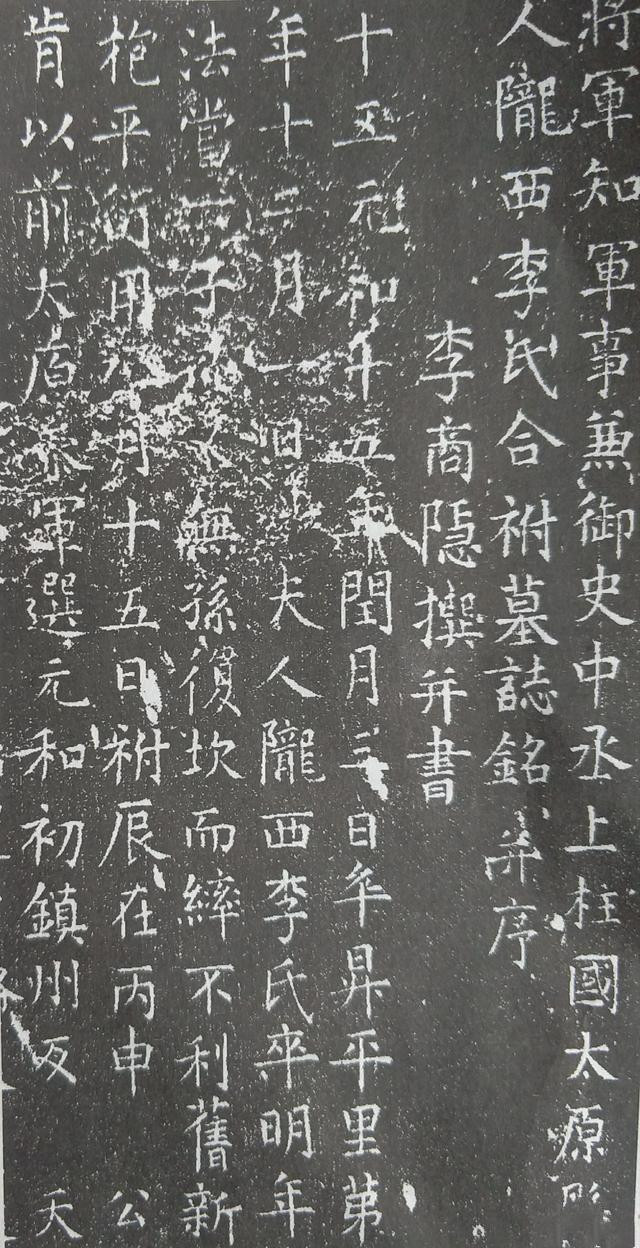 將軍知軍事兼御史中丞上柱國太原
人隴西李氏合祔墓誌銘并序
李商隱撰并書
十五元和年五年閏月三日卒昇平里第
年十二月一日夫人隴西李氏卒明年
法當 子 無孫復坎而繂不利舊新
枹平 用 月十五日祔辰在丙申 公
肯以前太原參軍選元和初鎮州反 天